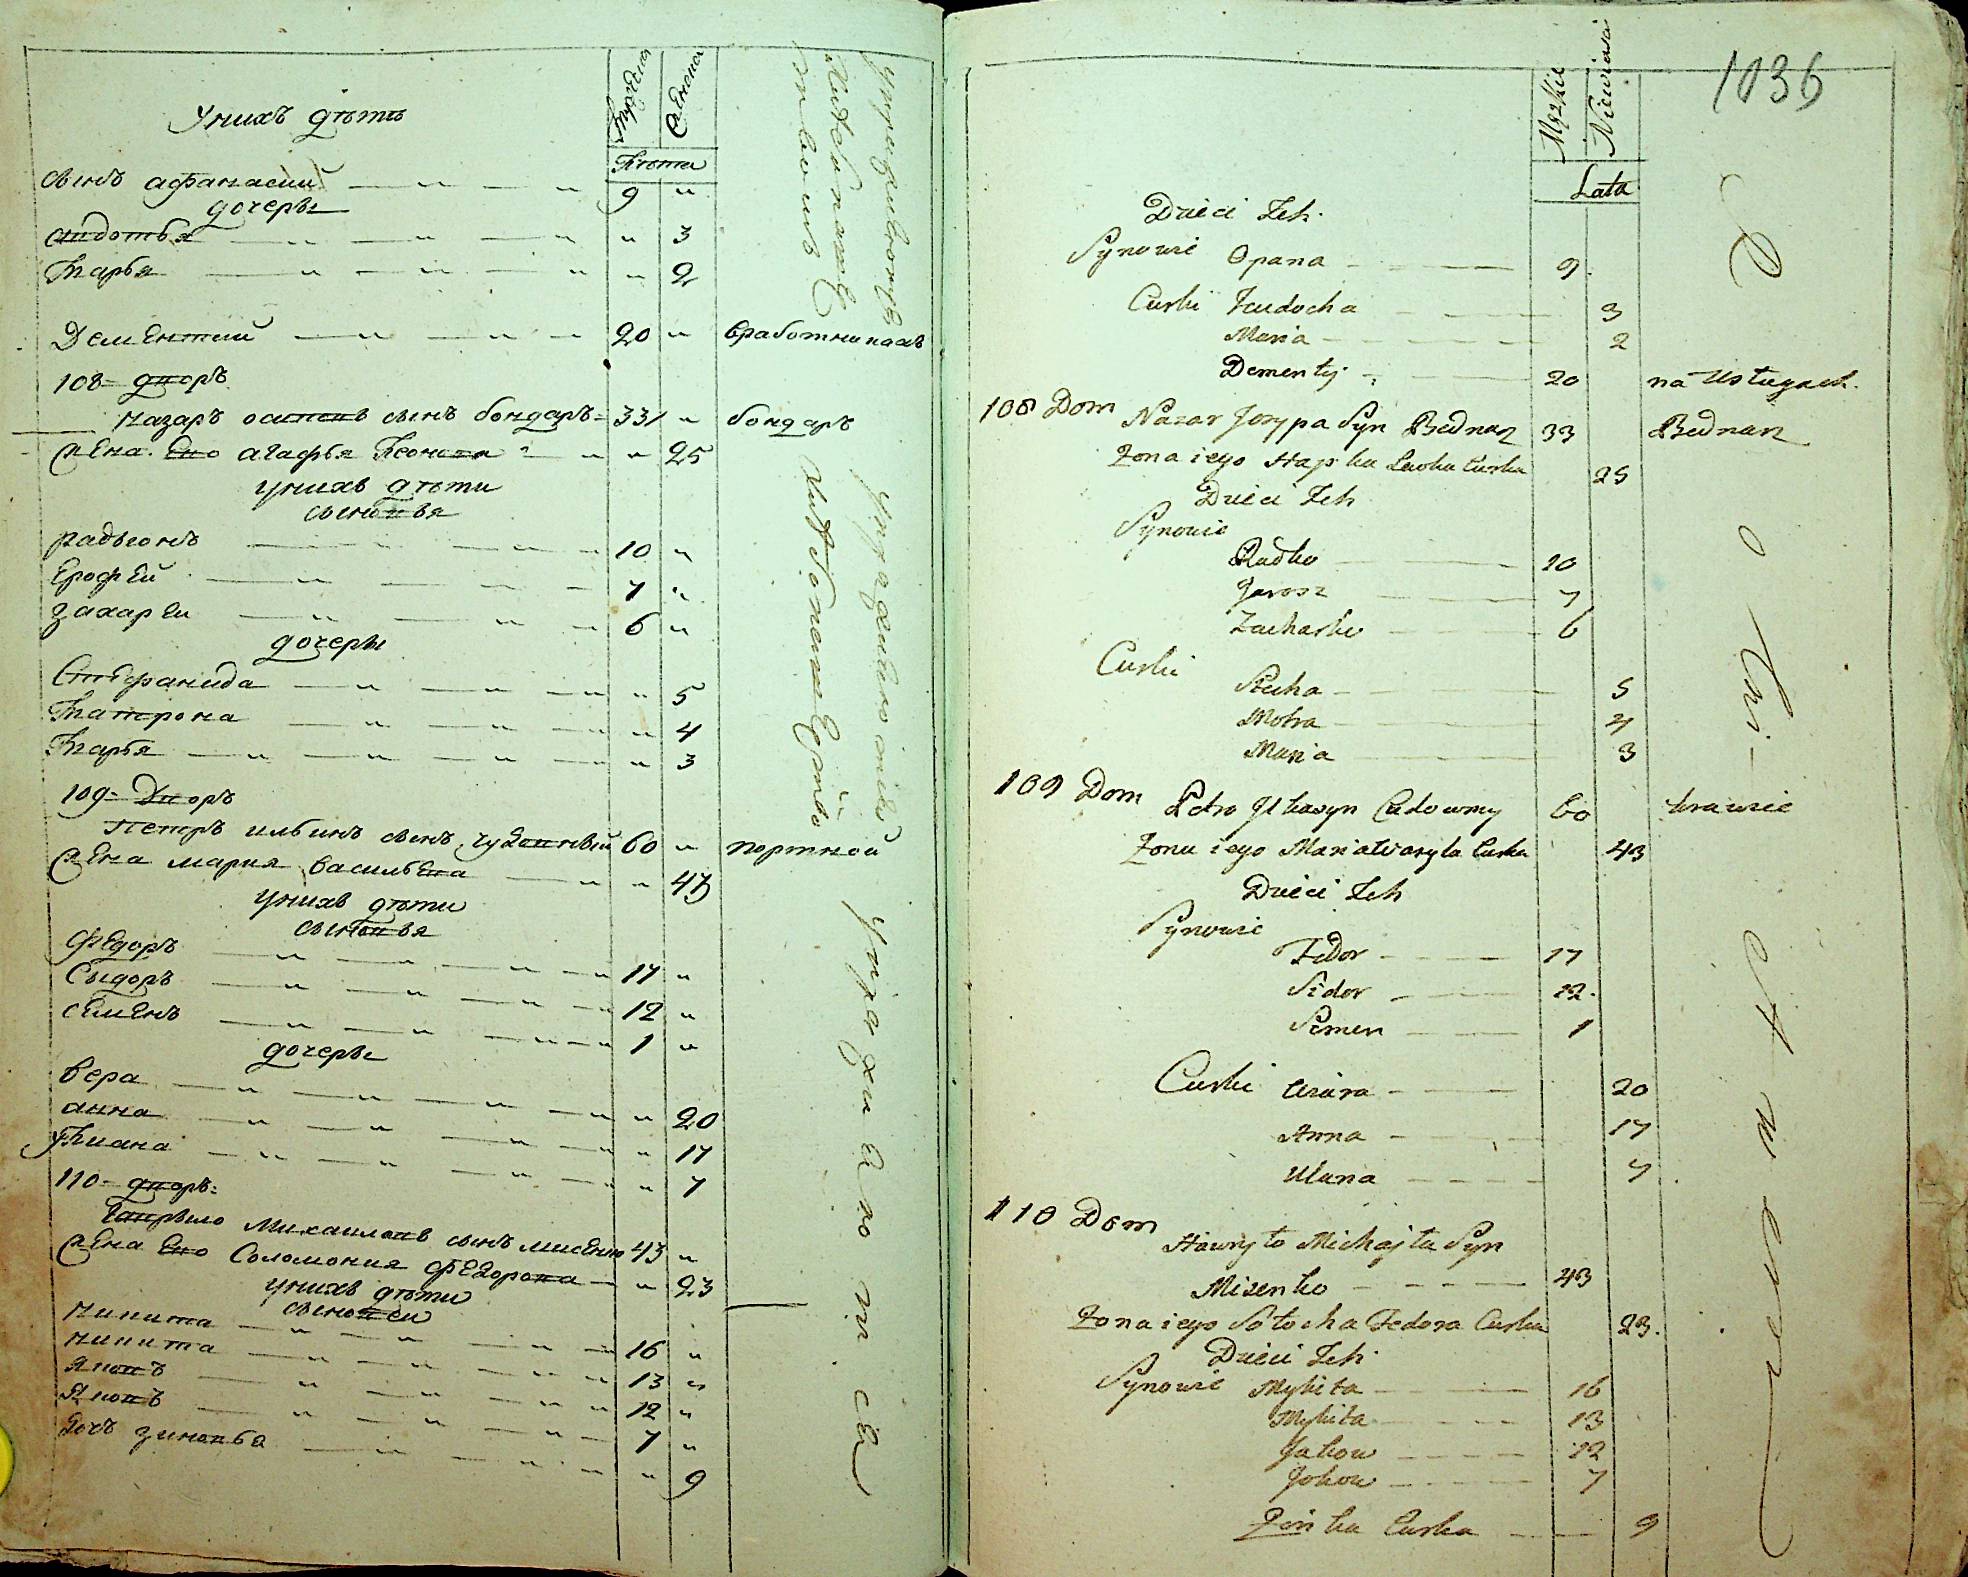 У нихъ дѣти
Мужеска
Женска
Лѣты
сынъ афанасий 9 "
дочеры
Авдотья " 3
Марья " 2
Дементий 20 " вработникахъ
108 дворъ
назаръ осиповъ сынъ бондаръ 33 " бондаръ
Жена Его агафья Леонова " 25
У нихъ дѣти
сыновья
радивонъ 10 "
Ерофей 7 "
захарей 6 "
дочеры
Стефанида " 5
Матрона " 4
Марья " 3
109 Дворъ
петръ ильинъ сынъ чудовный 60 " портной
Жена мария васильева " 43
У нихъ дѣти
сыновья
Федоръ 17 "
Сыдоръ 12 "
семенъ 1 "
дочеры
вера " 20
анна " 17
Улиана " 7
110 дворъ
Гаврыло Михаиловъ сынъ мисенко 43 "
Жена Его Соломония Федорова " 23
У нихъ дѣти
сыновеи
никита 16 "
никита 13 "
Яковъ 12 "
Яковъ 7 "
дочъ зиновья " 9
1036
Męzkie
Niewiasie
Lata
Dzieci Ich
Synowie Opana 9
Curki Jeudocha 3
Maria 2
Dementy 20 na Usługach
108 Dom Nazar Josypa Syn Bednarz 33 Bednarz
Zona iego Hapka Lewka Curka 25
Dzieci Ich
Synowie
Radko 10
Jarosz 7
Zacharko 6
Curki
Stecha 5
Motra 4
Maria 3
109 Dom Petro Ilkasyn Cudowny 60 krawiec
Zona iego Maria Wasyla Curka 43
Dzieci Ich
Synowie
Fedor 17
Sidor 12
Semen 1
Curki Wiara 20
Anna 17
Ulana 7
110 Dom
Hawryło Michajła Syn
Misenko 43
Zona iego Sołocha Fedora Curka 23
Dzieci Ich
Synowie Mykita 16
Mykita 13
Jakow 12
Jakow 7
Zinka Curka 9